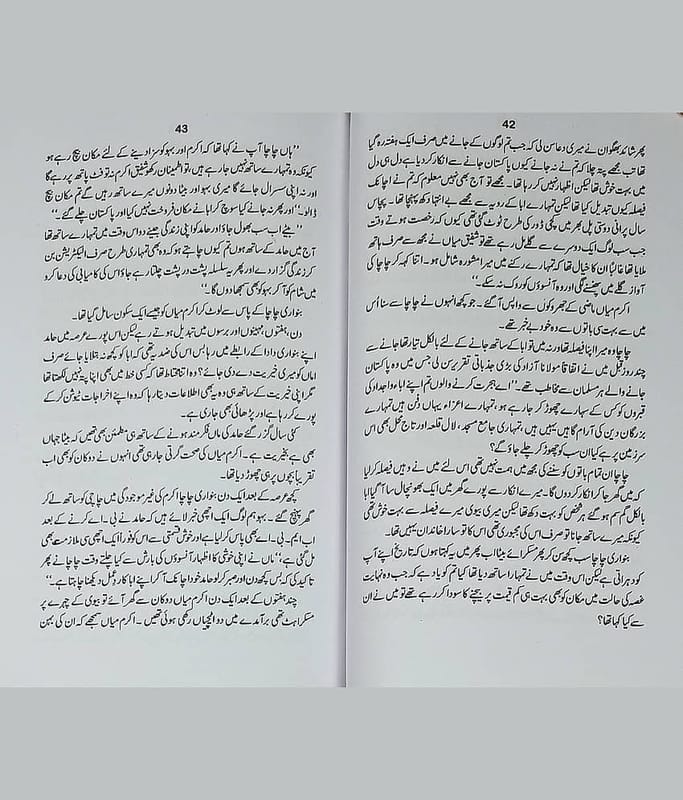 42
پھر شائد بھگوان نے میری دعا سن لی کہ جب تم لوگوں کے جانے میں صرف ایک ہفتہ رہ گیا
تھا تب مجھے پتہ چلا کہ تم نے نہ جانے کیوں پاکستان جانے سے انکار کر دیا ہے دل ہی دل
میں بہت خوش تھا لیکن اظہار نہیں کر رہا تھا۔ مجھے تو آج بھی نہیں معلوم کہ تم نے اچانک
فیصلہ کیوں تبدیل کیا تھا لیکن تمہارے ابا کے رویہ سے مجھے بے انتہا دکھ پہنچا تھا۔ پچاس
سال پرانی دوستی پل بھر میں کچی ڈور کی طرح ٹوٹ گئی تھی کیوں کہ رخصت ہوتے وقت
جب سب لوگ ایک دوسرے سے گلے مل رہے تھے تو شفیق میاں نے مجھ سے صرف ہاتھ
ملایا تھا غالباً ان کا خیال تھا کہ تمہارے رکنے میں میرا مشورہ شامل ہو۔ اتنا کہہ کر چاچا کی
آواز گلے میں پھنسنے لگی اور وہ آنسوؤں کو روک نہ سکے۔"
اکرم میاں ماضی کے جھروکوں سے واپس آ گئے۔ جو کچھ انہوں نے چاچا سے سنا اس
میں سے بہت سی باتوں سے وہ خود بے خبر تھے۔
چاچا وہ میرا اپنا فیصلہ تھا ورنہ میں تو ابا کے ساتھ جانے کے لئے بالکل تیار تھا جانے سے
چند روز قبل میں نے اتفاقاً مولانا آزاد کی بڑی جذباتی تقریر سن لی جس میں وہ پاکستان
جانے والے ہر مسلمان سے مخاطب تھے۔ "اے ہجرت کرنے والوں تم اپنے اباء واجداد کی
قبروں کو کس کے سہارے چھوڑ کر جا رہے ہو، تمہارے اعزاء یہاں دفن ہیں تمہارے
بزرگان دین کی آرام گاہیں یہیں ہیں، تمہاری جامع مسجد، لال قلعہ اور تاج محل بھی اس
سرزمین پر ہے کیا ان سب کو چھوڑ کر چلے جاؤ گے؟
چاچا ان تمام باتوں کو سننے کی مجھ میں ہمت نہیں تھی اس لئے میں نے وہیں فیصلہ کر لیا
کہ میں گھر جا کر انکار کر دوں گا۔ میرے انکار سے پورے گھر میں ایک بھونچال سا آ گیا ابا
بالکل گم سم ہو گئے ہر شخص کو بہت دکھ تھا لیکن میری بیوی میرے فیصلہ سے بہت خوش تھی
کیونکہ میرے ساتھ جانا تو صرف اس کی مجبوری تھی اس کا تو سارا خاندان یہیں تھا۔
بنواری چاچا سب کچھ سن کر پھر مسکرائے بیٹا اب پھر میں یہ کہتا ہوں کہ تاریخ اپنے آپ
کو دہراتی ہے لیکن اس وقت میں نے تمہارا ساتھ دیا تھا کیا تم کو یاد ہے کہ جب وہ نہایت
غصہ کی حالت میں مکان کو بھی بہت ہی کم قیمت پر بیچنے کا سودا کر رہے تھے تو میں نے ان
سے کیا کہا تھا؟
43
"ہاں چاچا آپ نے کہا تھا کہ اکرم اور بہو کو سزا دینے کے لئے مکان بیچ رہے ہو
کیونکہ وہ تمہارے ساتھ نہیں جا رہے ہیں، تو اطمینان رکھو شفیق اکرم نہ تو فٹ پاتھ پر رہے گا
اور نہ اپنی سسرال جائے گا میری بہو اور بیٹا دونوں میرے ساتھ رہیں گے تم مکان بیچ
ڈالو۔" اور پھر نہ جانے کیا سوچ کر ابا نے مکان فروخت نہیں کیا اور پاکستان چلے گئے۔"
"بیٹے اب سب بھول جاؤ اور حامد کو اپنی زندگی جینے دو اس وقت میں تمہارے ساتھ تھا
آج میں حامد کے ساتھ ہوں تم کیوں چاہتے ہو کہ وہ بھی تمہاری طرح صرف الیکٹریشن بن
کر زندگی گزار دے اور پھر یہ سلسلہ پشت در پشت چلتا رہے جاؤ اس کی کامیابی کی دعا کرو
میں شام کو آ کر بہو کو بھی سمجھا دوں گا۔"
بنواری چاچا کے پاس سے لوٹ کر اکرم میاں کو جیسے ایک سکون سا مل گیا تھا۔
دن، ہفتوں، مہینوں اور برسوں میں تبدیل ہوتے رہے لیکن اس پورے عرصہ میں حامد
اپنے بنواری دادا کے رابطے میں رہا بس اس کی ضد یہ تھی کہ ابا کو کچھ نہ بتلایا جائے صرف
اماں کو میری خیریت دے دی جائے؟ وہ اتنا محتاط تھا کہ کسی خط میں بھی اپنا پتہ نہیں لکھتا تھا
مگر اپنی خیریت کے ساتھ ہی وہ یہ بھی اطلاعات دیتا رہا کہ وہ اپنے اخراجات ٹیوشن کر کے
پورے کر رہا ہے اور پڑھائی بھی جاری ہے۔
کئی سال گزر گئے حامد کی ماں فکر مند ہونے کے ساتھ ہی مطمئن بھی تھیں کہ بیٹا جہاں
بھی ہے بخیریت ہے۔ اکرم میاں کی صحت گرتی جا رہی تھی انہوں نے دوکان کو بھی اب
تقریباً بچوں پر ہی چھوڑ دیا تھا۔
کچھ عرصہ کے بعد ایک دن بنواری چاچا اکرم کی غیر موجودگی میں چاچی کو ساتھ لے کر
گھر پہنچ گئے۔ بہو ہم لوگ ایک اچھی خبر لائے ہیں کہ حامد نے بی۔اے کرنے کے بعد
اب ایم۔بی۔اے بھی پاس کر لیا ہے اور خوش قسمتی سے اس کو فوراً ایک اچھی سی ملازمت بھی
مل گئی ہے"، ماں نے اپنی خوشی کا اظہار آنسوؤں کی بارش سے کیا چلتے وقت چاچا نے پھر
تاکید کی کہ بس کچھ دن اور صبر کر لو حامد خود اچانک آ کر اپنے ابا کا ردِ عمل دیکھنا چاہتا ہے۔"
چند ہفتوں کے بعد ایک دن اکرم میاں دوکان سے گھر آئے تو بیوی کے چہرے پر
مسکراہٹ تھی برآمدے میں دو اٹیچیاں رکھی ہوئی تھیں۔ اکرم میاں سمجھے کہ ان کی بہن